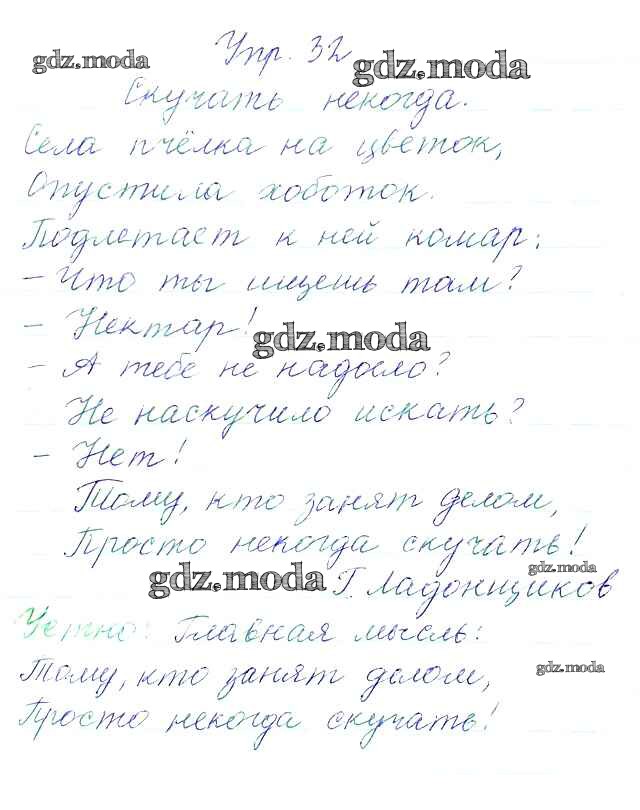 Упр. 32
gdz.moda
gdz.moda
Скучать некогда.
Села пчёлка на цветок,
Опустила хоботок.
Подлетает к ней комар:
– Что ты ищешь там?
– Нектар!
gdz.moda
– А тебе не надоело?
Не наскучило искать?
– Нет!
Тому, кто занят делом,
Просто некогда скучать!
gdz.moda
gdz.moda
Г. Ладонщиков
Устно: Главная мысль:
Тому, кто занят делом,
gdz.moda
Просто некогда скучать!